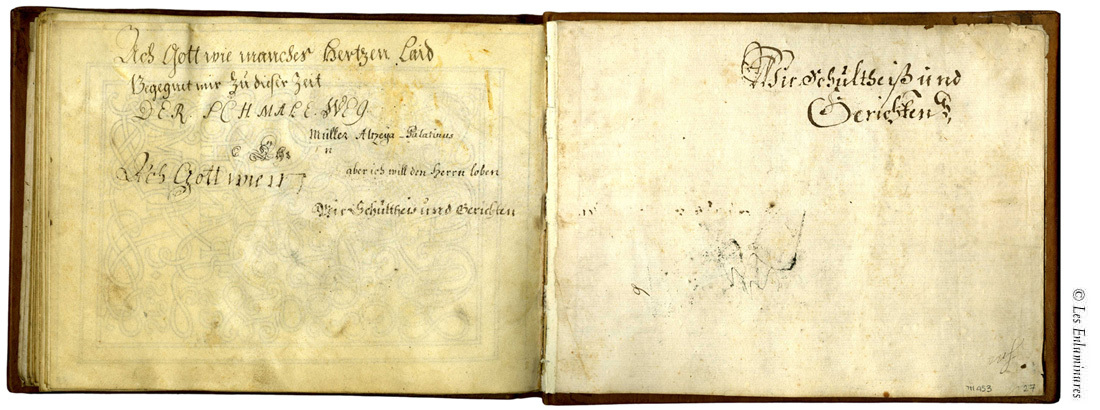 Ach Gott wie manches Hertzen Laid
Begegnet mir Zu dieser Zeit
DER SCHMALE WEG
Müller Altzeÿa Palatinus
n
Ach Gott wie
aber ich will den Herrn loben
Wir Schültheis und Gerichten
Wir Schültheiß und
Gerichten
6
m 453
27
© Les Enluminures